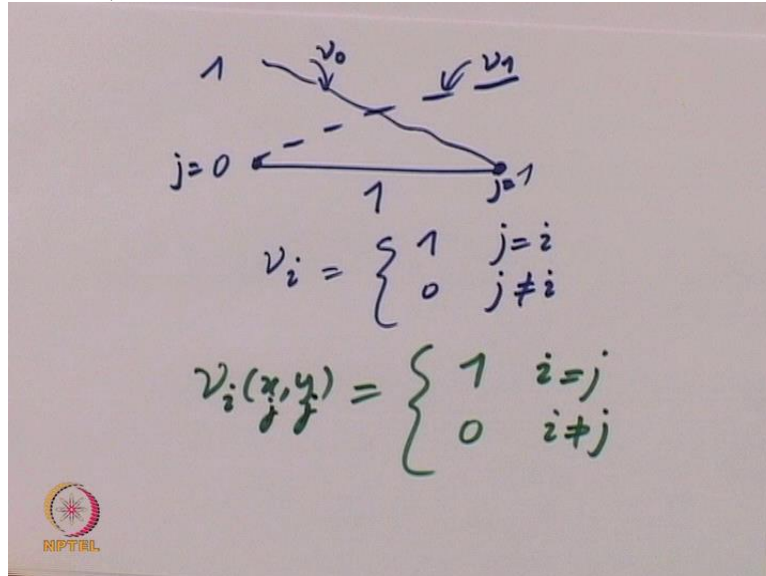 1 ν₀ ν₁
j=0 j=1
1
ν_i = { 1 j=i
0 j≠i
ν_i(x_j, y_j) = { 1 i=j
0 i≠j
NPTEL